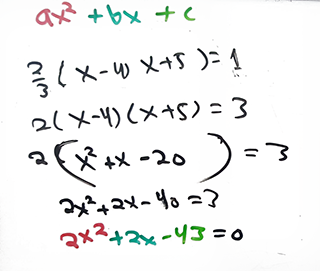 ax² + bx + c
2/3 (x-4)(x+5) = 1
2(x-4)(x+5) = 3
2(x²+x-20) = 3
2x²+2x-40=3
2x²+2x-43=0